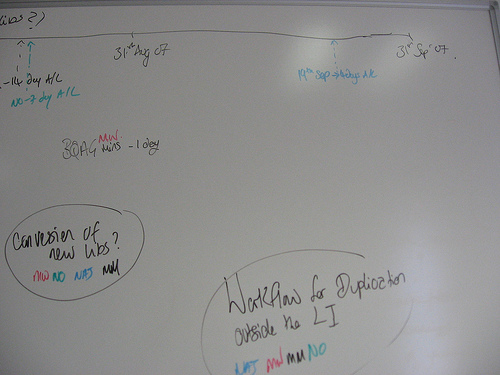 libs?)
31st Aug 07
31st Sep' 07.
-14 day A/L
NO-7 day A/L
19th Sep
MW
BOAG mins - 1 day
Conversion of
new libs?
MW NO NAJ MM
Workflow for Duplication
outside the LI
NAJ MW MM NO